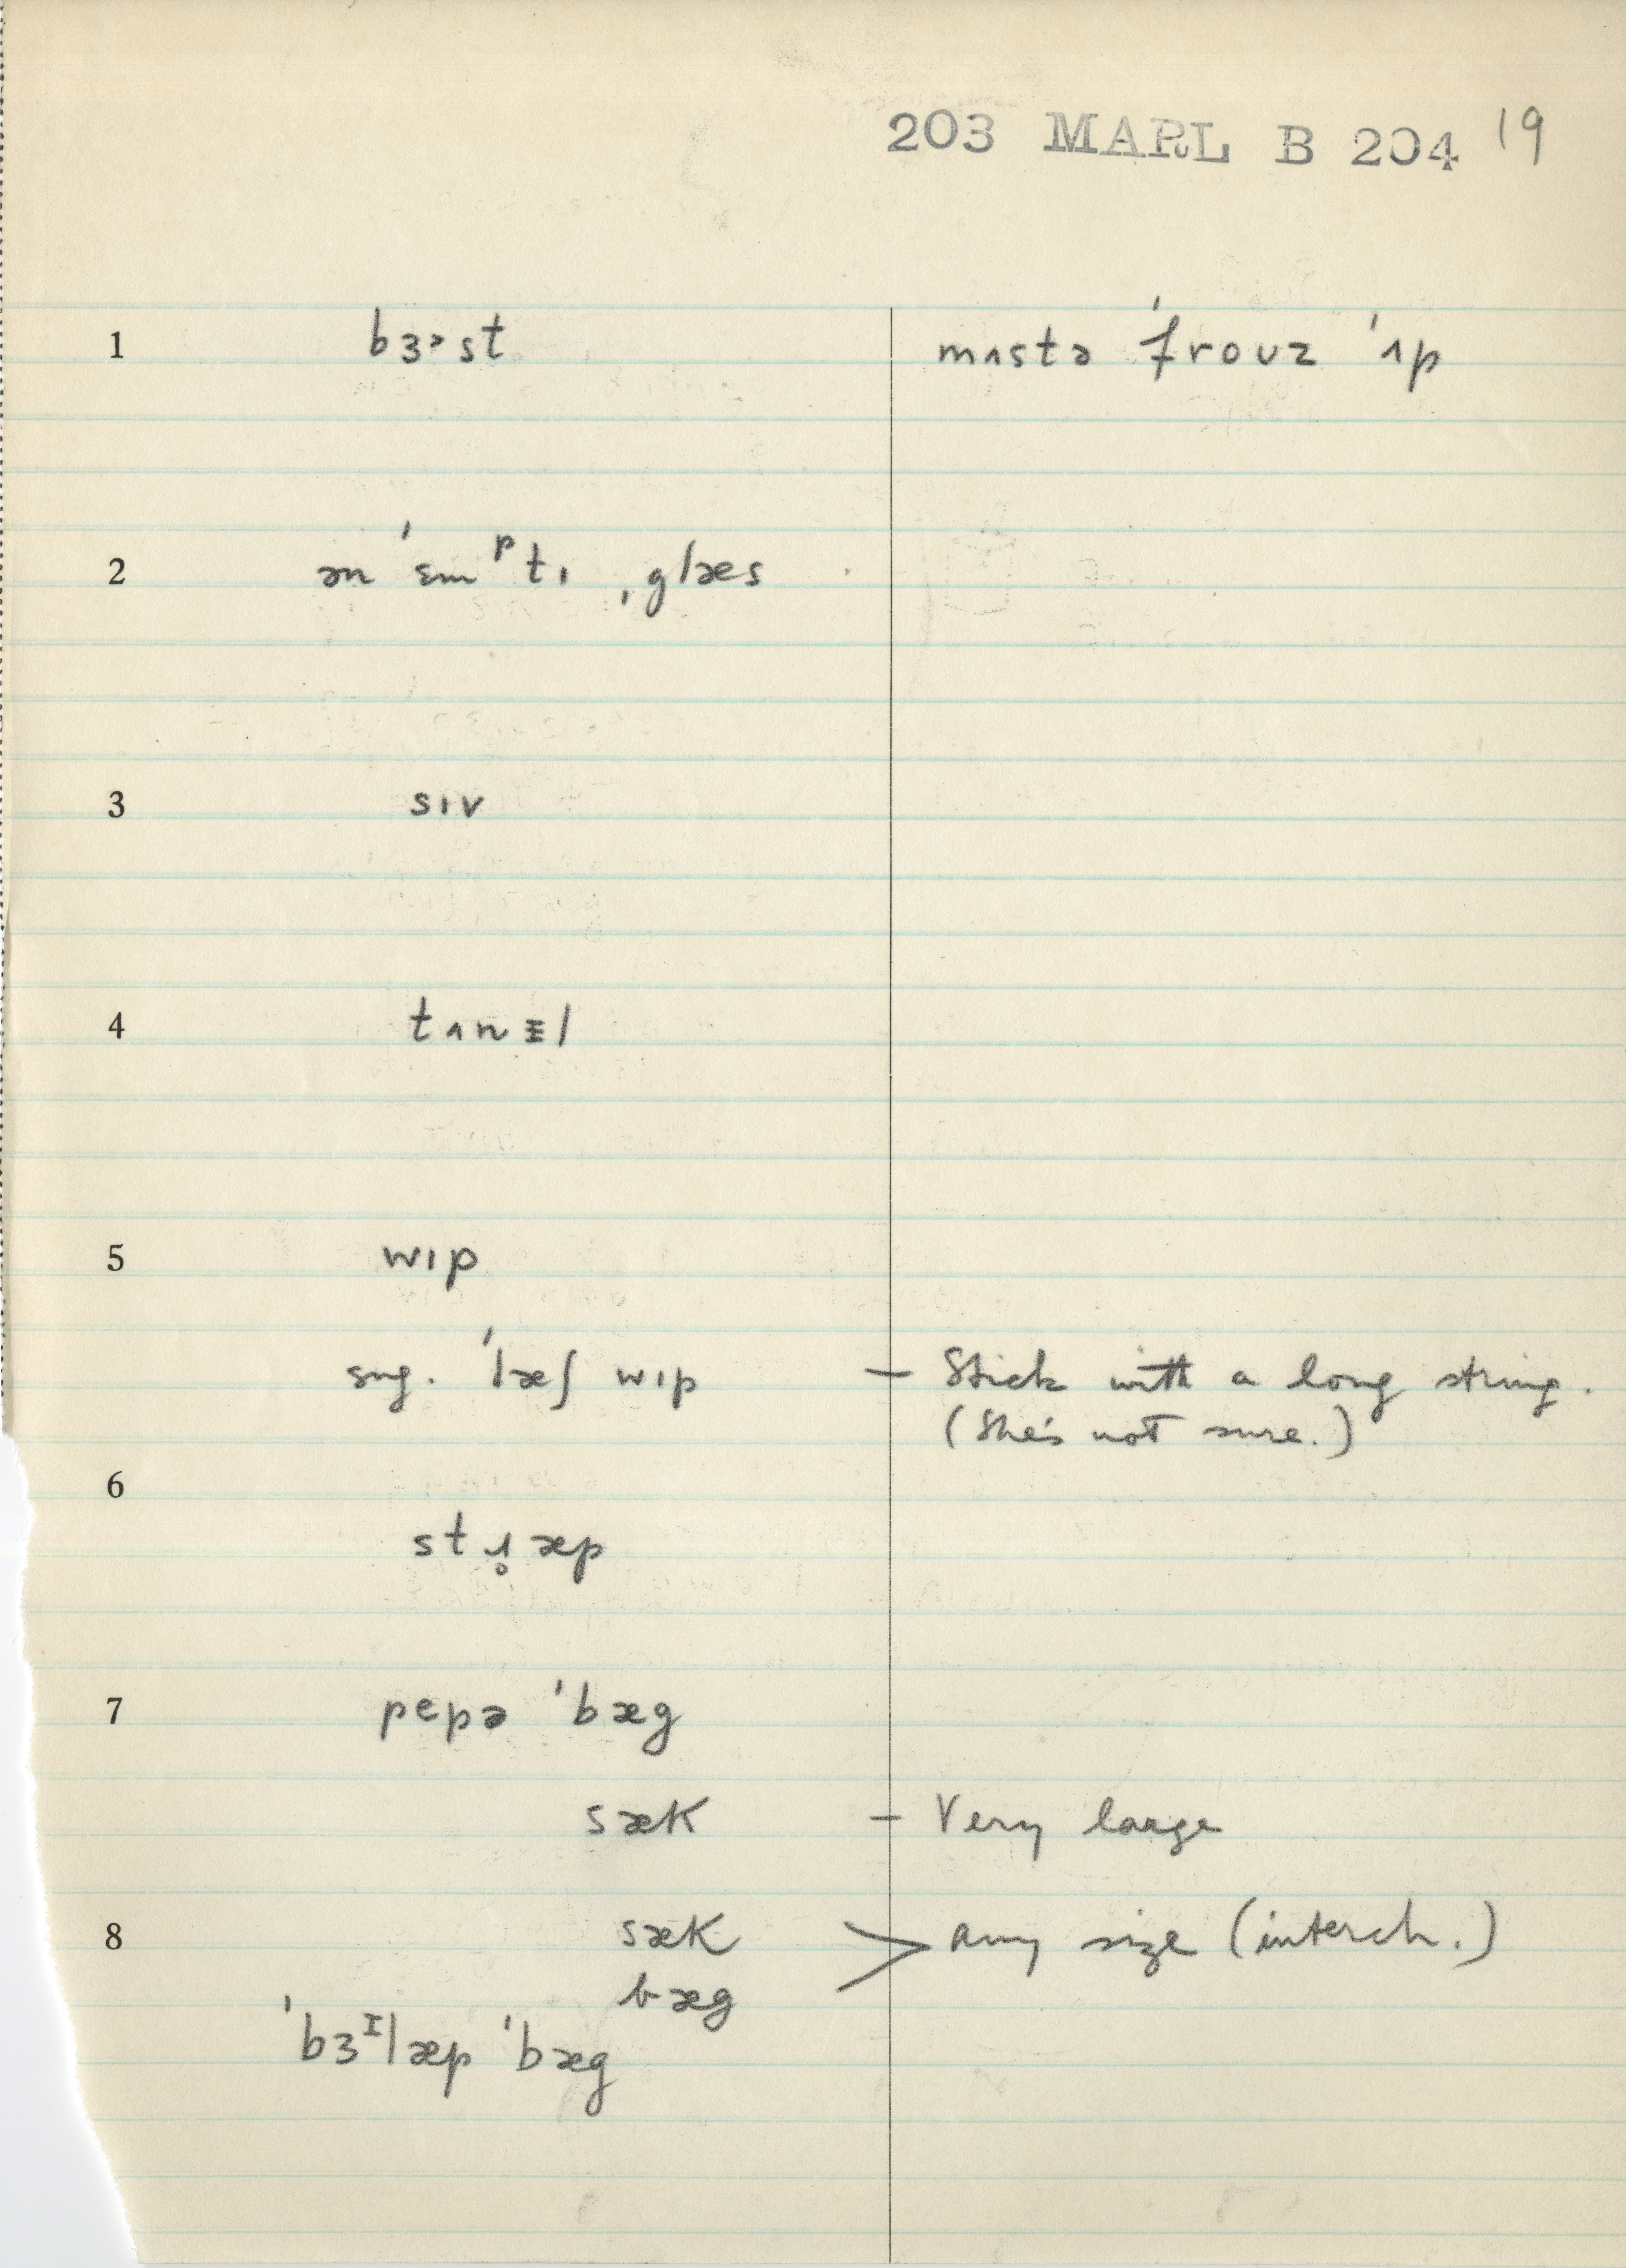 203 MARL B 204 19
1 bɜ˞st mʌstə ˈfrouz ˈʌp
2 ən ˈɛmᵖtɪ ˌglæs
3 sɪv
4 tʌnᵻl
5 wɪp
sug. ˈlæʃ wɪp — Stick with a long string.
(She's not sure.)
6
stɹ̥æp
7 pepə ˈbæg
sæk — Very large
8 sæk > any size (interch.)
bæg
ˈbɜᴵlæp ˈbæg